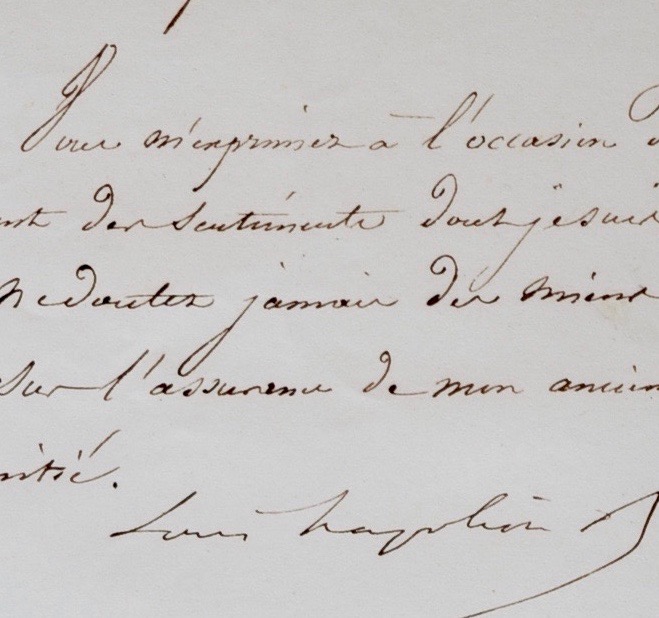 Vous m'exprimez à l'occasion d
nt des sentiments dont je suis
Ne doutez jamais des miens
sur l'assurance de mon ancien
mitié.
Louis Napoléon